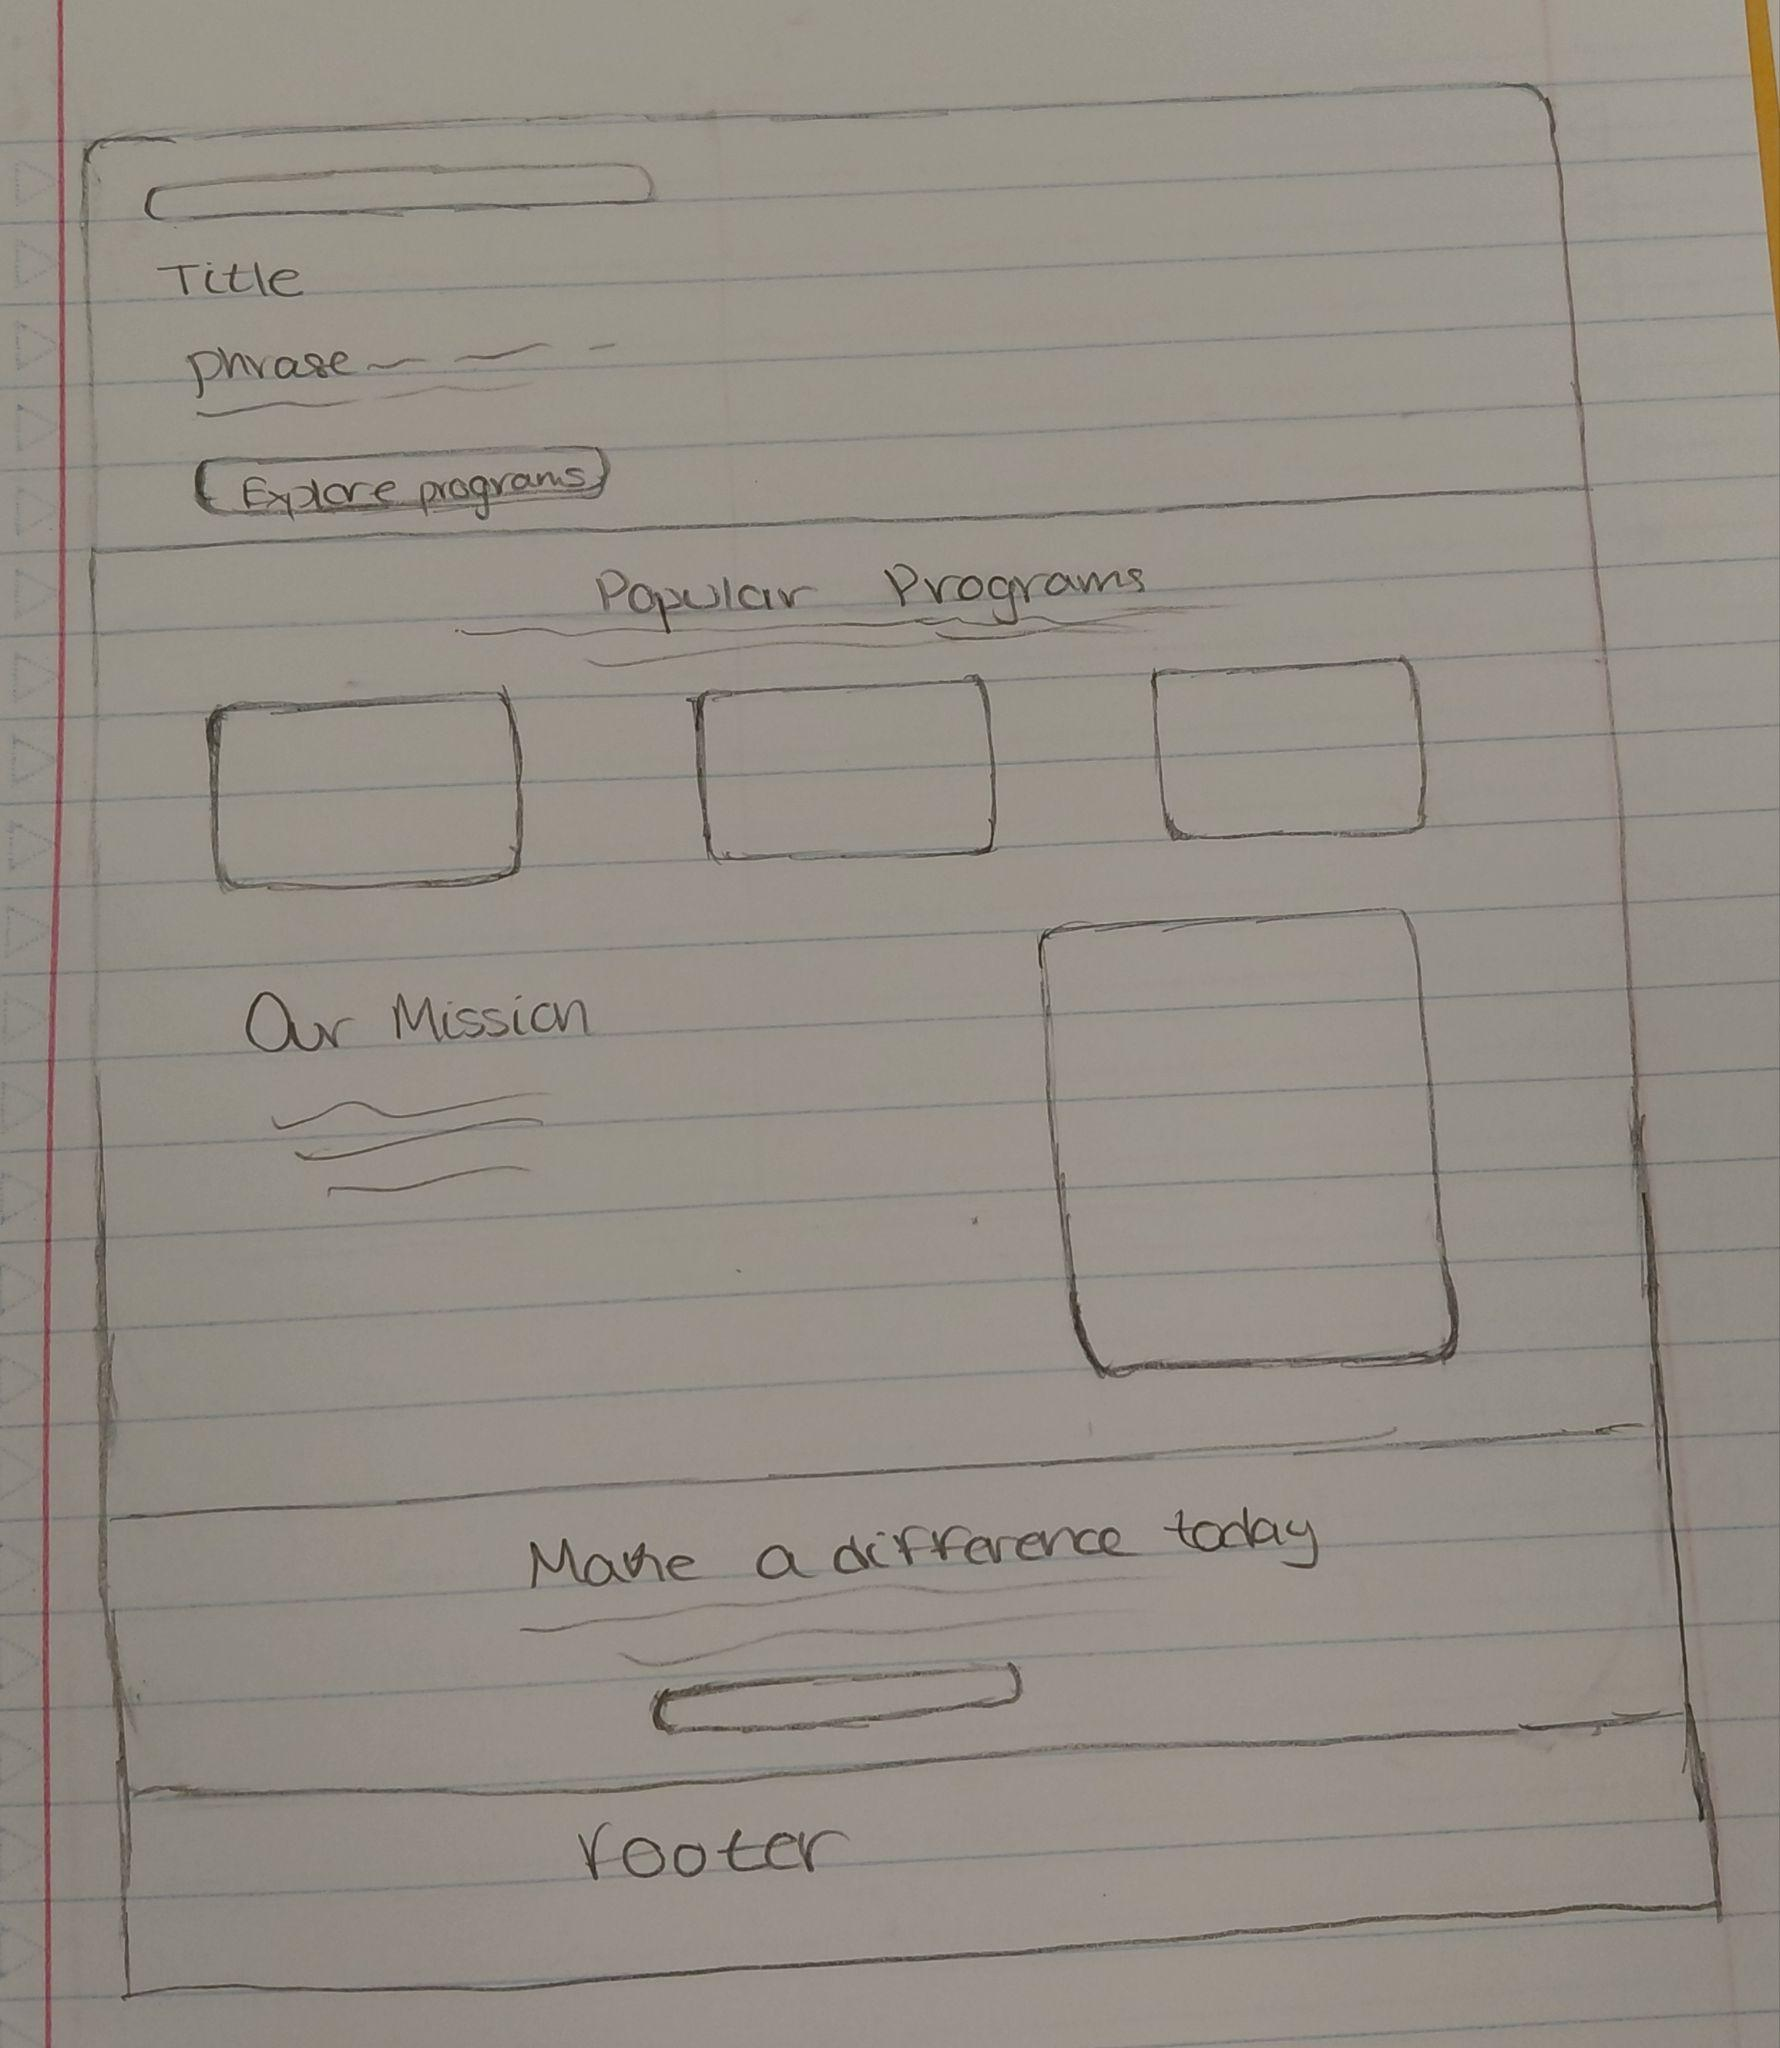 Title
phrase
Explore programs
Popular Programs
Our Mission
Make a difference today
Footer